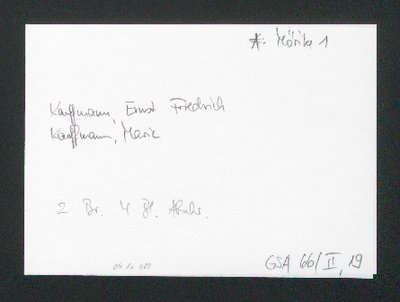 *: Mörike 1
Kauffmann, Ernst Friedrich
Kauffmann, Marie
2 Br. 4 Bl. Abschr.
GSA 66/II, 19